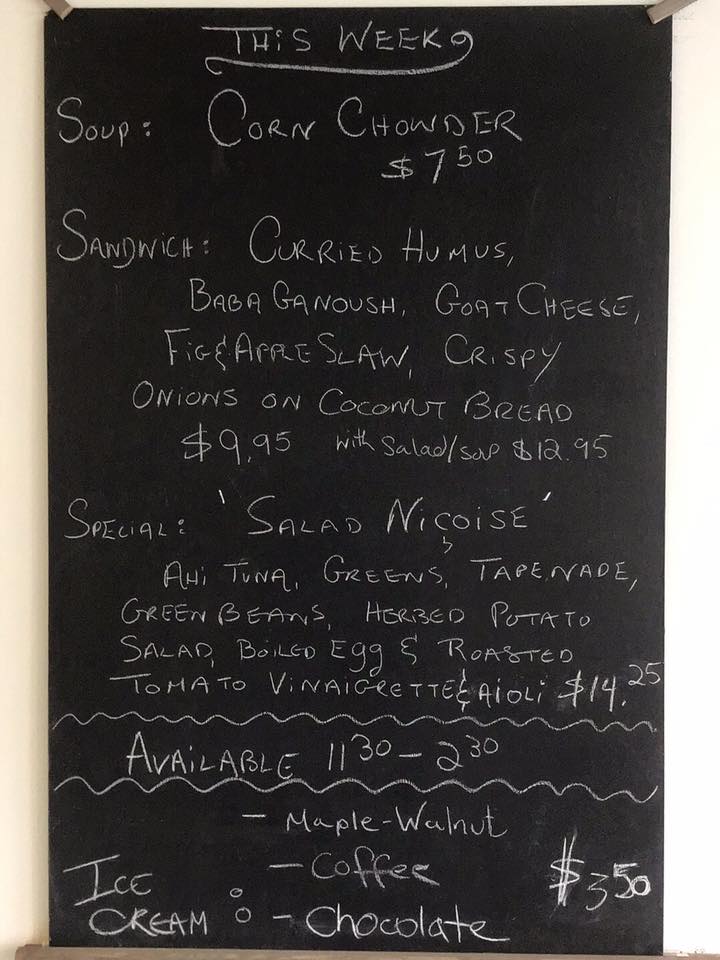 THIS WEEK
SOUP: CORN CHOWDER
$7 50
SANDWICH: CURRIED HUMUS,
BABA GANOUSH, GOAT CHEESE,
FIG & APPLE SLAW, CRISPY
ONIONS ON COCONUT BREAD
$9.95 with Salad/soup $12.95
SPECIAL: 'SALAD NIÇOISE'
AHI TUNA, GREENS, TAPENADE,
GREEN BEANS, HERBED POTATO
SALAD, BOILED Egg & ROASTED
TOMATO VINAIGRETTE & AIOLI $14.25
AVAILABLE 11 30 – 2 30
– Maple-Walnut
– Coffee
ICE CREAM: – Chocolate $3 50